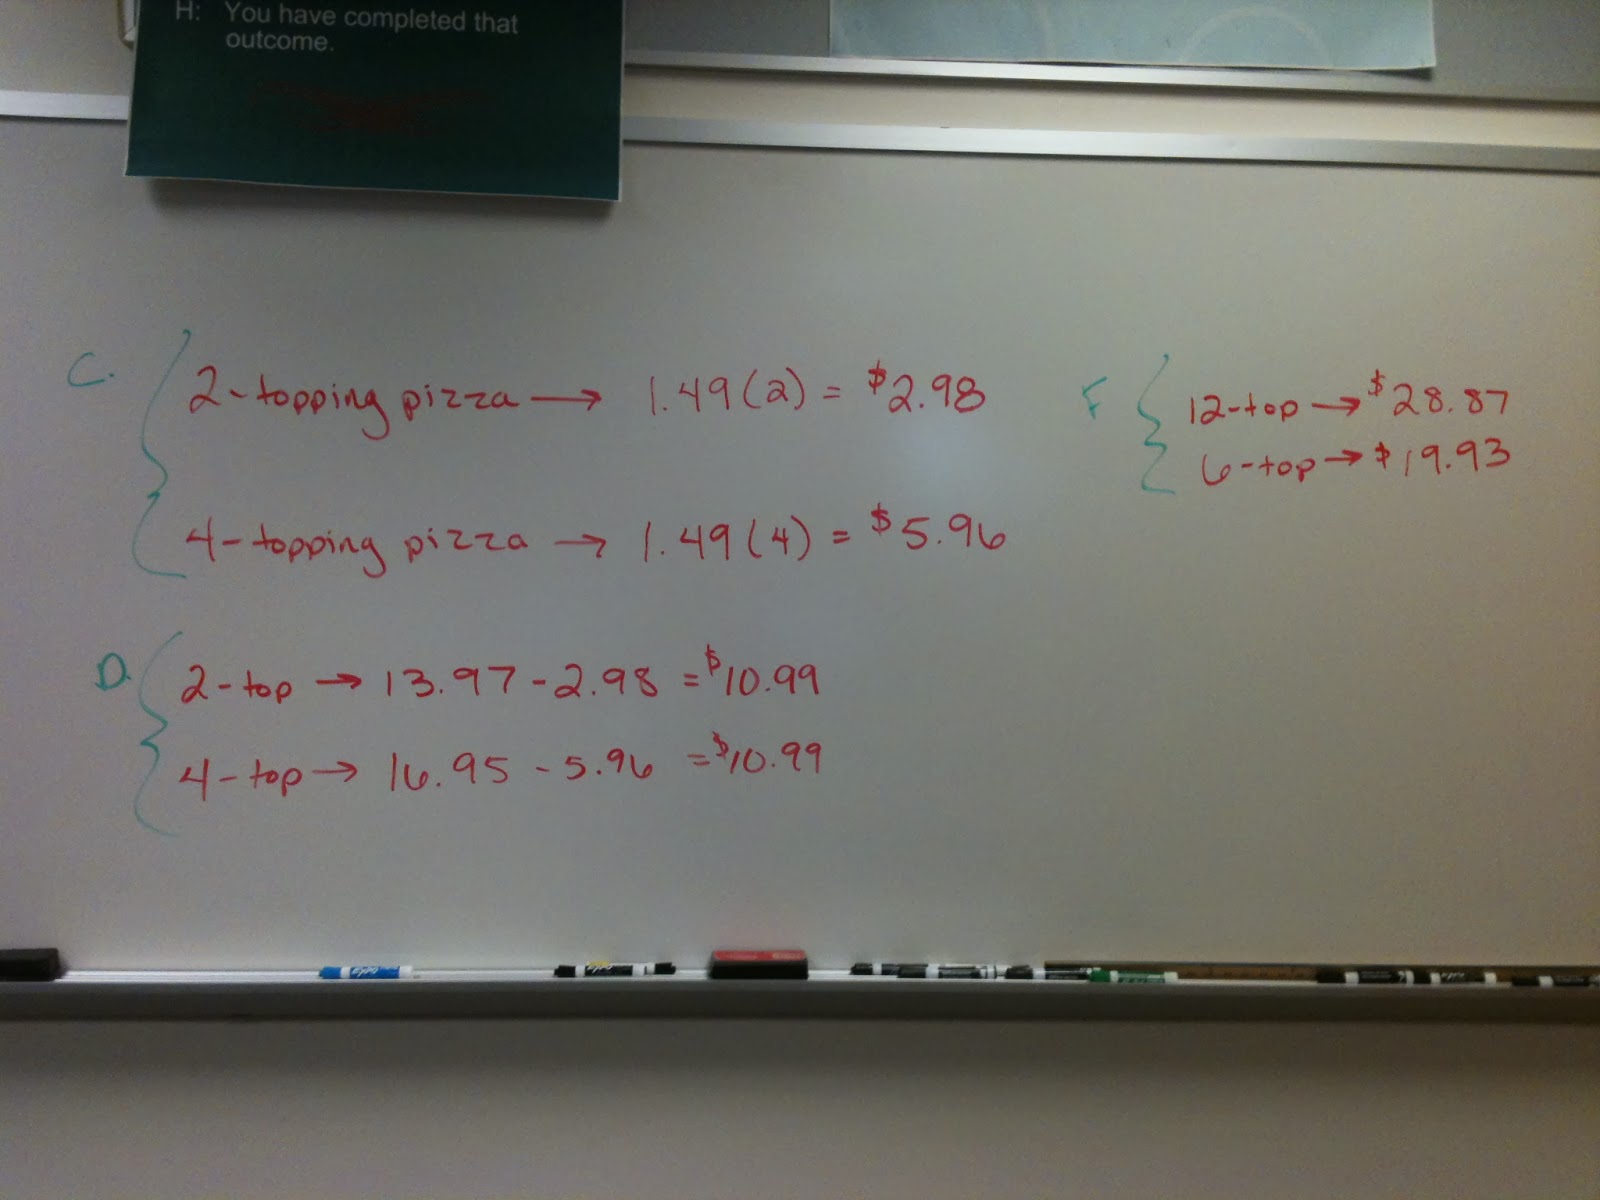 H: You have completed that
outcome.
C. 2-topping pizza → 1.49(2) = $2.98
4-topping pizza → 1.49(4) = $5.96
D. 2-top → 13.97 - 2.98 = $10.99
4-top → 16.95 - 5.96 = $10.99
F 12-top → $28.87
6-top → $19.93